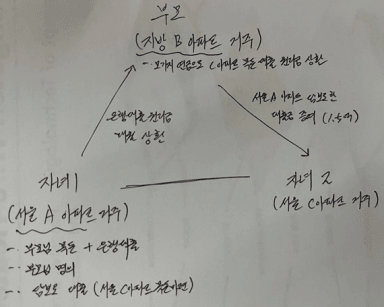 부모
(지방 B 아파트 거주)
- 모기지 연금으로 C아파트 목돈 대출 원리금 상환
은행대출 원리금
대신 상환
서울 A 아파트 담보로한
대출금 증여 (1.5억)
자녀1
자녀 2
(서울 A 아파트 거주)
(서울 C아파트 거주)
- 부모님 목돈 + 은행대출
- 부모님 명의
- 담보로 대출 (서울 C아파트 목돈마련)